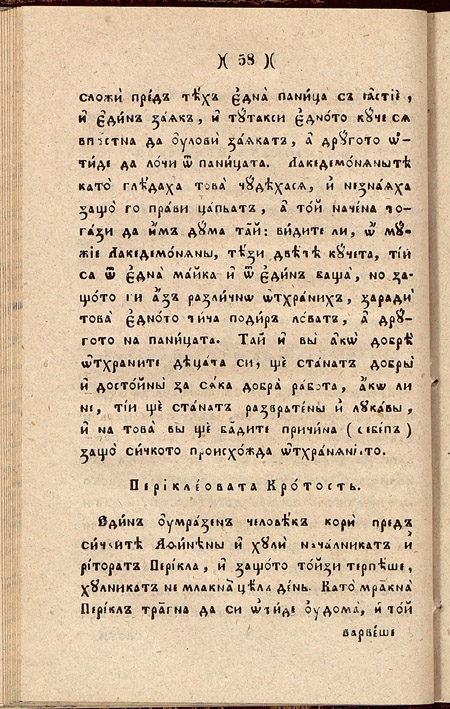 )( 58 )(
сложѝ пре́дъ тѣ́хъ є҆дна̀ пани́ца съ ꙗ҆стїе,
и҆ є҆ди́нъ за́ѧкъ, и҆ тꙋ́такси є҆дно́то кꙋ́че сѧ
впꙋстна да оу҆ловѝ за́ѧкатъ, а҆ дрꙋ́гото ѿ-
ти́де да ло́чи ѿ пани́цата. Лакедемо́нѧнытѣ
като̀ глѣ́даха това̀ чꙋ́дѣхасѧ, и҆ незна́ѧха
защо̀ го пра́ви ца́рьатъ, а҆ то́й наче́на то-
га́зи да и҆́мъ дꙋ́ма та́й: ви́дите ли, ѽ мꙋ́-
жїе Лакедемо́нѧны, тѣ́зи двѣ́тѣ кꙋ́чета, тїи́
са ѿ є҆дна̀ ма́йка и҆ ѿ є҆ди́нъ баща̀, но за-
що́то ги а҆́зъ разли́чнѡ ѿтхра́нихъ, зарадѝ
това̀ є҆дно́то ти́ча поди́ръ ло́ватъ, а҆ дрꙋ́-
гото на пани́цата. Та́й и҆ вы̀ а҆́кѡ добрѣ̀
ѿтхра́ните дѣца́та си, щѐ ста́натъ добры̀
и҆ досто́йны за сѧ́ка добра̀ ра́бота, а҆́кѡ ли
не, тїи щѐ ста́натъ развратены̀ и҆ лꙋка́вы,
и҆ на това̀ вы щѐ бѫ́дите причи́на (себе́пъ)
защо̀ си́чкото происхо́жда ѿтхра́нѧнїето.
Перікле́овата Кро́тость.
Є҆ди́нъ оу҆мра́зенъ человѣ́къ корѝ предъ
си́чкитѣ Аѳи́нѣны и҆ хꙋлѝ нача́лникатъ и҆
рі́торатъ Пері́кла, и҆ защо́то то́йзи терпѣ́ше,
хꙋ́лникатъ не млакна̀ цѣ́лъ де́нь. Като̀ мра́кна
Пері́клъ тра́гна да си ѿи́де оу҆дома̀, и҆ то́й
варве́ше